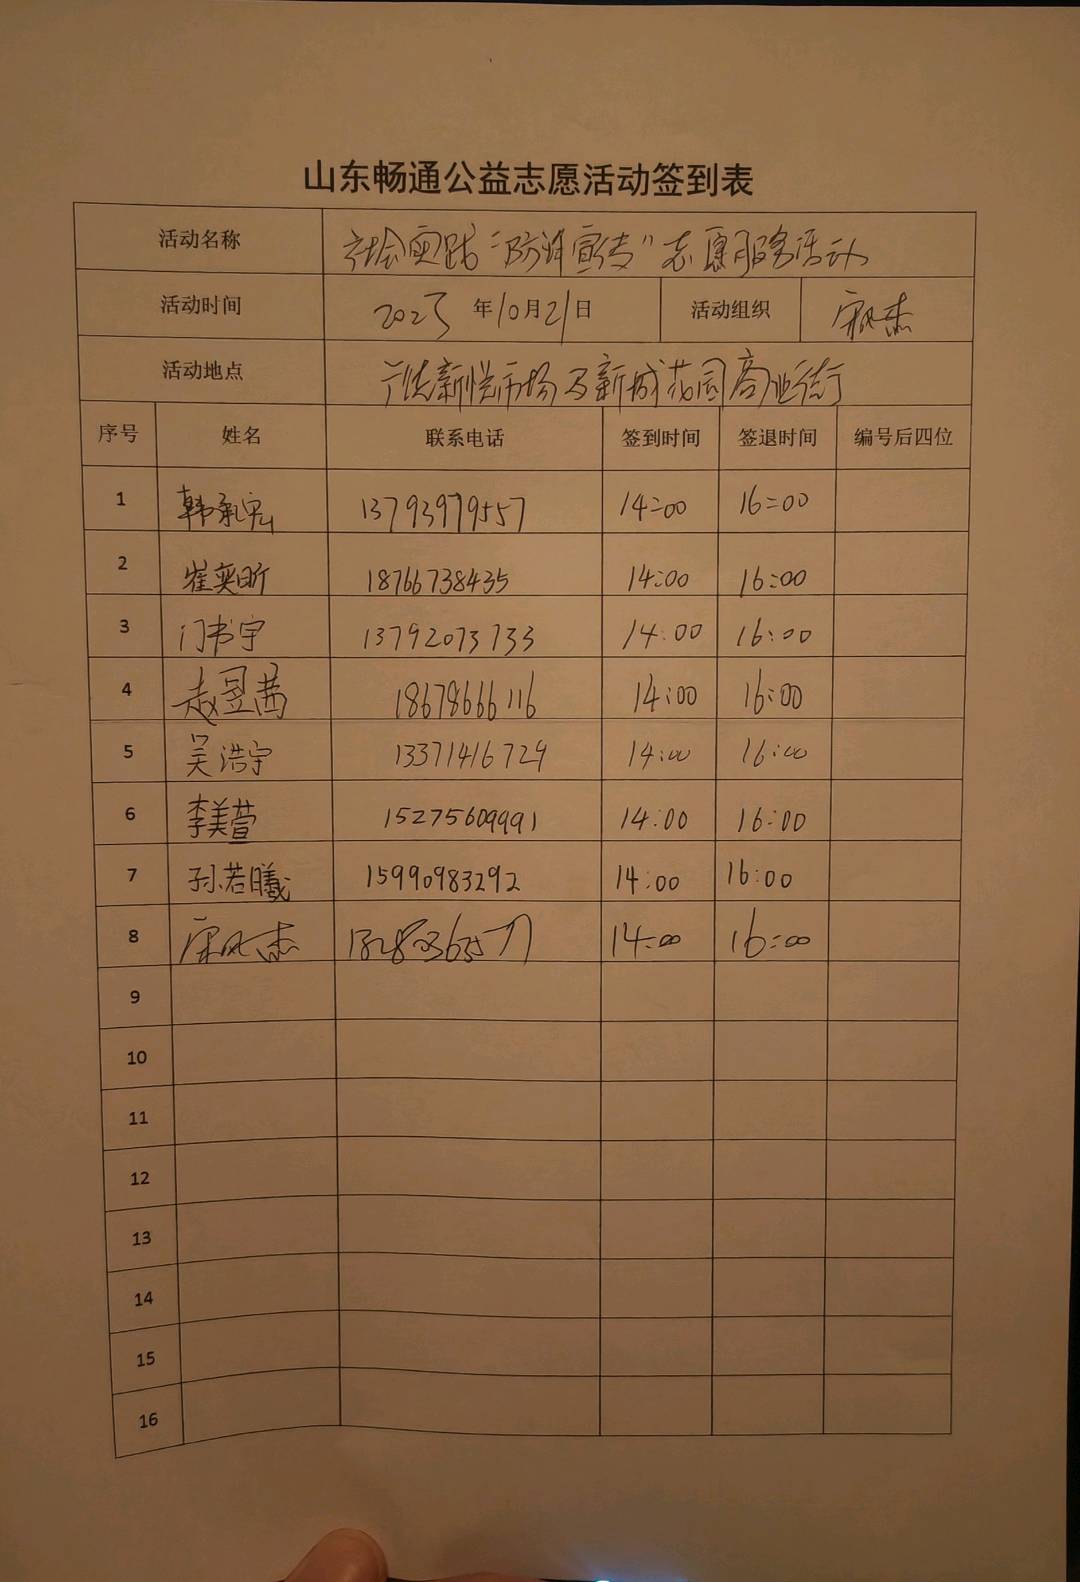 山东畅通公益志愿活动签到表
活动名称 社会实践“防诈宣传”志愿服务活动
活动时间 2025年10月21日 活动组织 宋风杰
活动地点 新悦市场及新城花园商业街
序号 姓名 联系电话 签到时间 签退时间 编号后四位
1 韩承宏 13793979557 14:00 16:00
2 崔奕昕 18766738435 14:00 16:00
3 门书宇 13792073733 14:00 16:00
4 赵昱茜 18678666116 14:00 16:00
5 吴浩宇 13371416729 14:00 16:00
6 李美萱 15275609991 14:00 16:00
7 孙若曦 15990983292 14:00 16:00
8 宋风杰 14:00 16:00
9
10
11
12
13
14
15
16